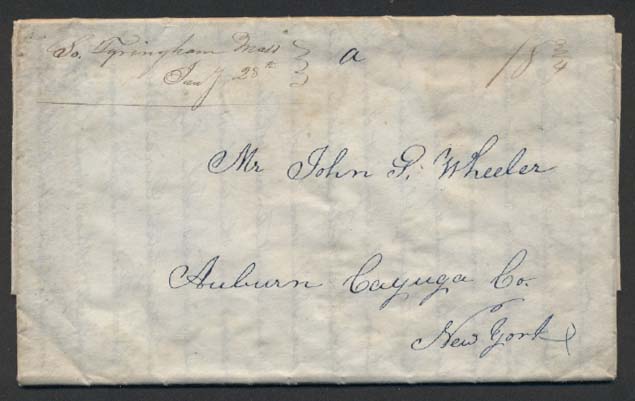 So. Tyringham Mass
Jany 28th
a
18 3/4
Mr John P. Wheeler
Auburn Cayuga Co.
New York